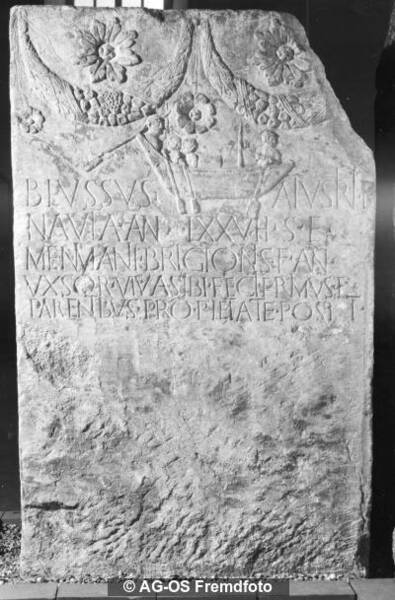 BLVSSVS ATVSIRI
NAVTA·AN·LXXV·H·S·E
MENIMANI·BRIGIONIS·F·AN·
VXSOR·VIVA·SIBI·FECIT·PRIMVS·F·
PARENTIBVS·PRO·PIETATE·POSIT·
© AG-OS Fremdfoto